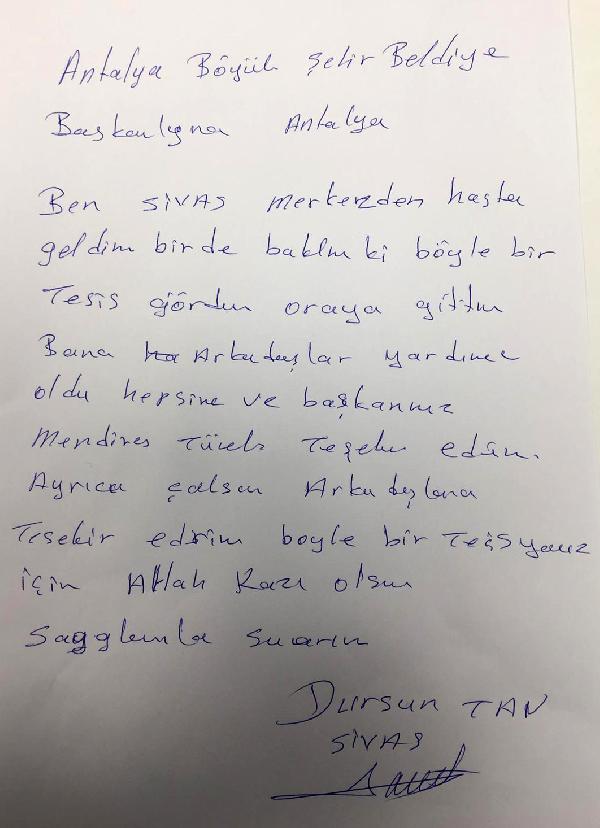 Antalya Böyük Şehir Beldiye
Başkanlığına Antalya
Ben SİVAS merkezden hasta
geldim birde baktım ki böyle bir
Tesis gördüm oraya gittim
Bana Arkadaşlar yardımcı
oldu hepsine ve başkanımız
Mendires Türel Teşekür ederim.
Ayrıca çalışan Arkadaşlara
Teşekir edrim boyle bir Tesis
için Allah Razı olsun
Dursun TAN
SİVAS